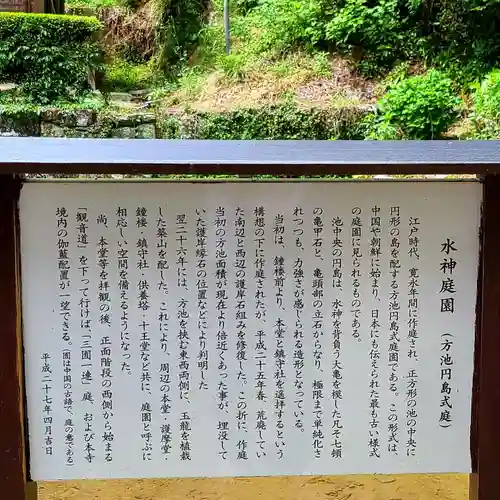 水神庭園（方池円島式庭）
江戸時代、寛永年間に作庭され、正方形の池の中央に
円形の島を配する方池円島式庭園である。この形式は、
中国や朝鮮に始まり、日本にも伝えられた最も古い様式
の庭園に見られるものである。
池中央の円島は、水神を背負う大亀を模した凡そ七頓
の亀甲石と、亀頭部の立石からなり、極限まで単純化さ
れつつも、力強さが感じられる造形となっている。
当初は、鐘楼前より、本堂と鎮守社を遥拝するという
構想の下に作庭されたが、平成二十五年春、荒廃してい
た南辺と西辺の護岸石組みを修復した。この折に、作庭
当初の方池面積が現在より倍近くあった事が、埋没して
いた護岸縁石の位置などにより判明した。
翌二十六年には、方池を挟む東西両側に、玉龍を植栽
した築山を配した。これにより、周辺の本堂・護摩堂・
鐘楼・鎮守社・供養塔・十王堂などと共に、庭園と呼ぶに
相応しい空間を備えるようになった。
尚、本堂等を拝観の後、正面階段の西側から始まる
「観音道」を下って行けば、「三囿一連」庭、および本寺
境内の伽藍配置が一望できる。（囿は中国の古語で、庭の意である）
平成二十七年四月吉日